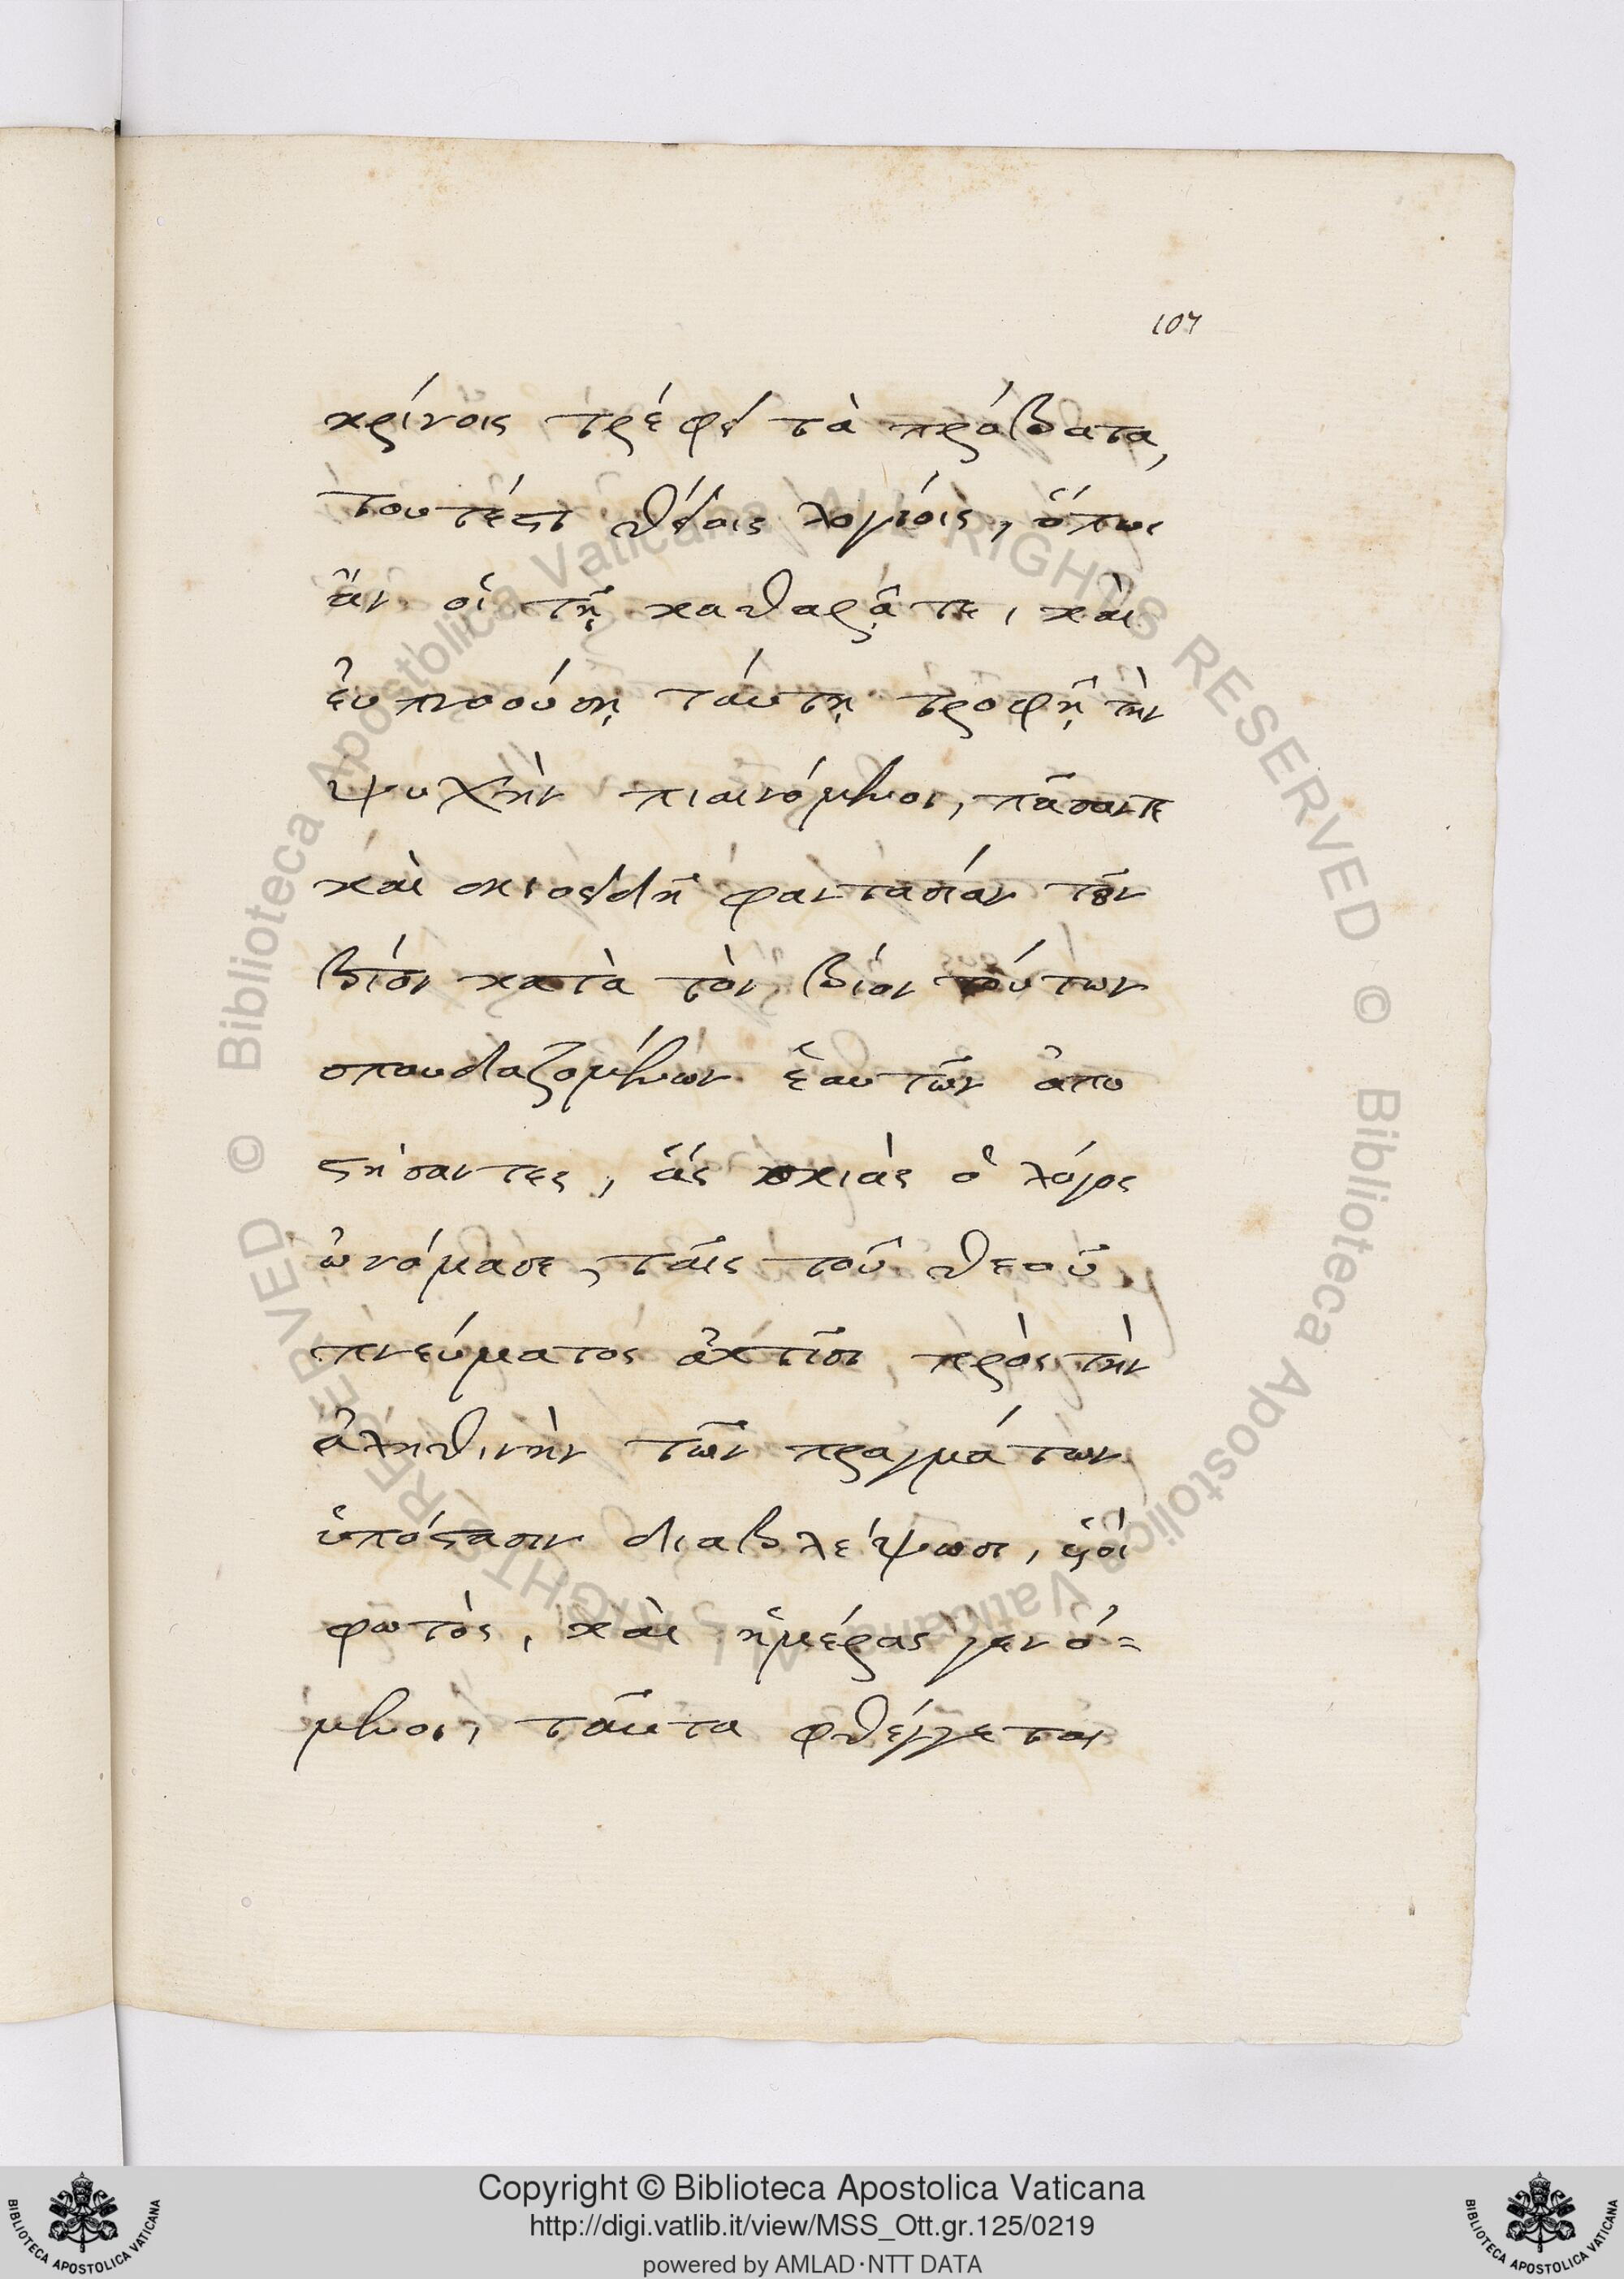 107
κρίνοις τρέφει τὰ πρόβατα,
τουτέστι θείοις λογίοις, ὅπως
ἂν οἱ τῇ καθαρᾷ τε, καὶ
εὐπνοούσῃ ταύτῃ τροφῇ τὴν
ψυχὴν πιαινόμενοι, πᾶσαν τε
καὶ σκιοειδῆ φαντασίαν τῶν
βίον κατὰ τὸν βίον τούτων
σπουδαζομένων ἑαυτῶν ἀπο
στήσαντες, ἃς σκιὰς ὁ λόγος
ὠνόμασε, ταῖς τοῦ θεοῦ
πνεύματος ἀκτῖσι, πρὸς τὴν
ἀληθινὴν τῶν πραγμάτων
ὑπόστασιν διαβλέψωσι, υἱοὶ
φωτὸς, καὶ ἡμέρας γενό=
μενοι, ταῦτα φθέγγεται
Biblioteca Apostolica Vaticana ALL RIGHTS RESERVED ©
Biblioteca Apostolica Vaticana ALL RIGHTS RESERVED ©
Copyright © Biblioteca Apostolica Vaticana
http://digi.vatlib.it/view/MSS_Ott.gr.125/0219
powered by AMLAD·NTT DATA
BIBLIOTECA APOSTOLICA VATICANA
BIBLIOTECA APOSTOLICA VATICANA